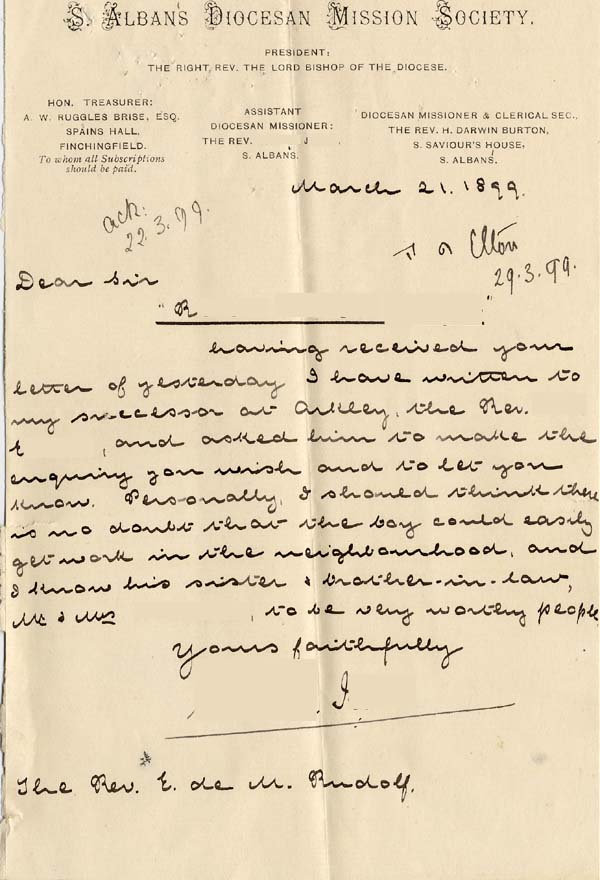 S. ALBANS DIOCESAN MISSION SOCIETY.
PRESIDENT:
THE RIGHT REV. THE LORD BISHOP OF THE DIOCESE.
HON. TREASURER:
A. W. RUGGLES BRISE, ESQ.
SPAINS HALL,
FINCHINGFIELD.
To whom all Subscriptions
should be paid.
ASSISTANT
DIOCESAN MISSIONER:
THE REV. J
S. ALBANS.
DIOCESAN MISSIONER & CLERICAL SEC.,
THE REV. H. DARWIN BURTON,
S. SAVIOUR'S HOUSE,
S. ALBANS.
March 21. 1899.
ack:
22.3.99.
Elton
29.3.99.
Dear Sir
"R "
having received your
letter of yesterday I have written to
my successor at Arkley, the Rev.
E , and asked him to make the
enquiry you wish and to let you
know. Personally, I should think there
is no doubt that the boy could easily
get work in the neighbourhood, and
I know his sister & brother-in-law,
Mr & Mrs , to be very worthy people
Yours faithfully
J
The Rev. E. de M. Rudolf.